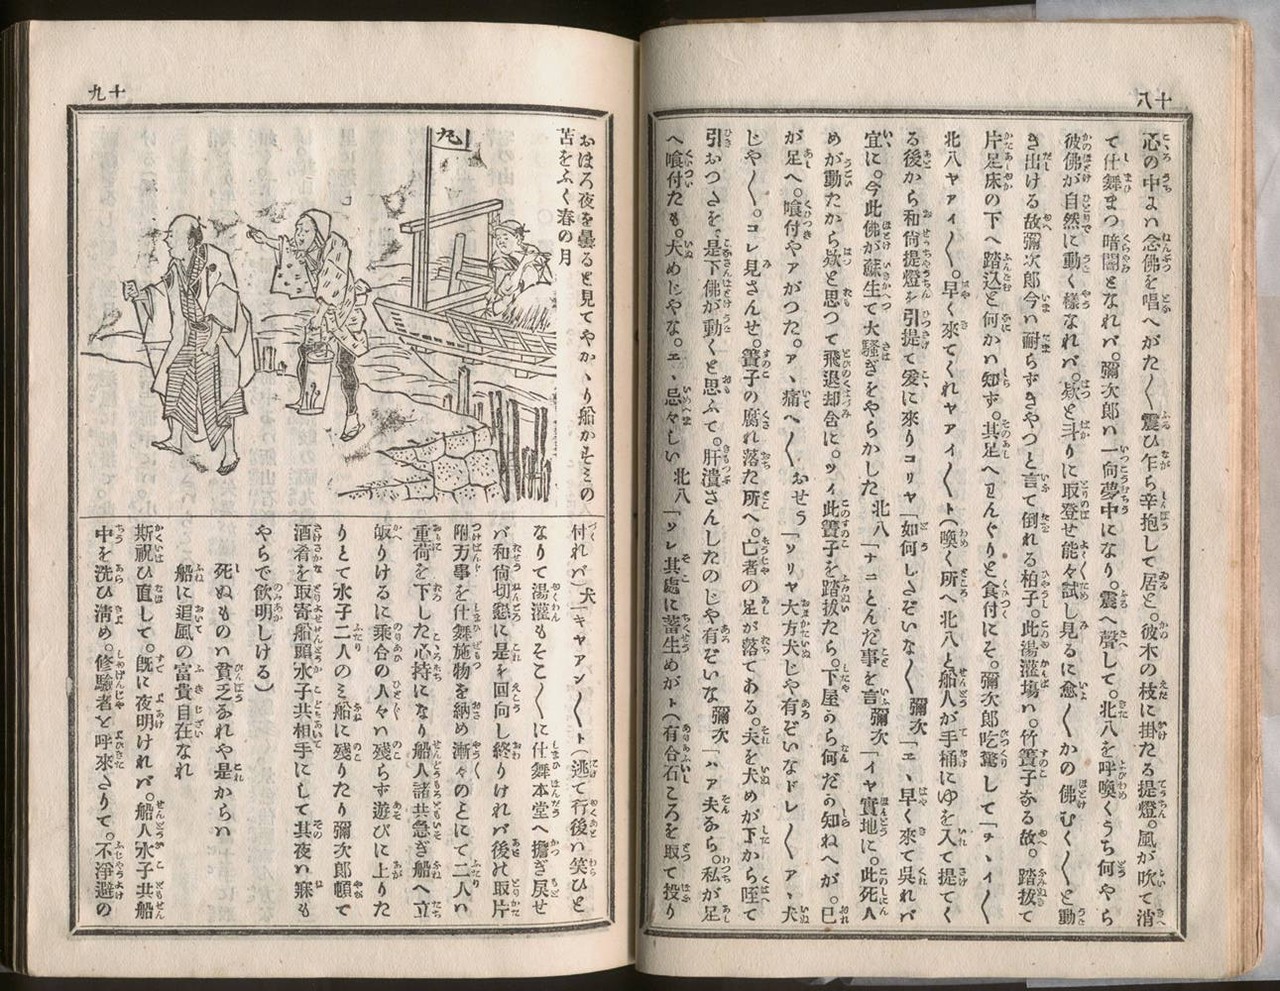 十八
心の中よハ念佛を唱へがたく震ひ乍ら辛抱して居と。彼木の枝に掛たる提燈。風が吹て消
て仕舞まつ暗闇となれバ。彌次郎ハ一向夢中になり。震へ聲して。北八を呼喚くうち何やら
彼佛が自然に動く樣なれバ。欻と斗りに取登せ能々試し見るに愈〱かの佛むく〱と動
き出ける故彌次郎今ハ耐らずきやつと言て倒れる柏子。此湯灌塲ハ。竹簀子なる故。踏拔て
片足床の下へ踏込と何かハ知ず。其足へワんぐりと食付にぞ。彌次郎吃驚して「ヲヽイ〱
北八ヤアイ〱。早く來てくれヤアイ〱ト(喚く所へ北八と船人が手桶にゆを入て提てく
る後から和尙提燈を引提て爰に來りコリヤ「如何しさぞいな〱 彌次「エヽ早く來て吳れバ
宜に。今此佛が蘇生て大騷ぎをやらかした 北八「ナニとんだ事を言 彌次「イヤ實地に。此死人
めが動たから欻と思つて飛退却含に。ツイ此簀子を踏拔たら。下屋から何だか知ねへが。己
が足へ。喰付やアがつた。アヽ痛へ〱 おせう「ソリヤ大方犬じや有ぞいなドレ〱アヽ犬
じや〱。コレ見さんせ。簀子の腐れ落た所へ。亡者の足が落てある。夫を犬めが下から咥て
引おつさを。是下佛が動くと思ふて。肝潰さんしたのじや有ぞいな 彌次「ハア夫なら。私が足
へ喰付たも。犬めじやな。エヽ忌々しい 北八「ソレ其處に畜生めがト(有合石ころを取て投り
十九
おほろ夜を曇ると見てやかゝり船かミミの
苫をふく春の月
九
付れバ)犬「キャアン〱ト(逃て行後ハ笑ひと
なりて湯灌もそこ〱に仕舞本堂へ擔ぎ戾せ
バ和尙切懇に是を回向し終りけれバ後の取片
附万事を仕舞施物を納め漸々のとにて二人ハ
重荷を下した心持になり船人諸共急ぎ船へ立
皈りけるに乘合の人々ハ殘らず遊びに上りた
りとて水子二人のミ船に殘りたり彌次郎頓て
酒肴を取寄船頭水子共相手にして其夜ハ寐も
やらで飮明しける)
死ぬものハ貧乏なれや是からハ
船に追風の富貴自在なれ
斯祝ひ直して。旣に夜明けれバ。船人水子共船
中を洗ひ淸め。修驗者と呼來さりて。不淨避の